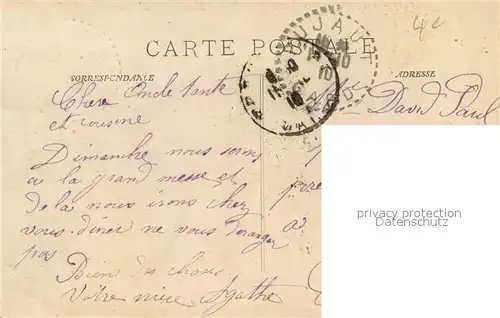 4e
CARTE POSTALE
CORRESPONDANCE
ADRESSE
PUJAUT
Chere Oncle tante
et cousine
David Paul
Dimanche nous serons
a la grand messe et
de la nous irons chez
vous. diner ne vous deranger
pas
Bien des choses
Votre niece Agathe
privacy protection
Datenschutz